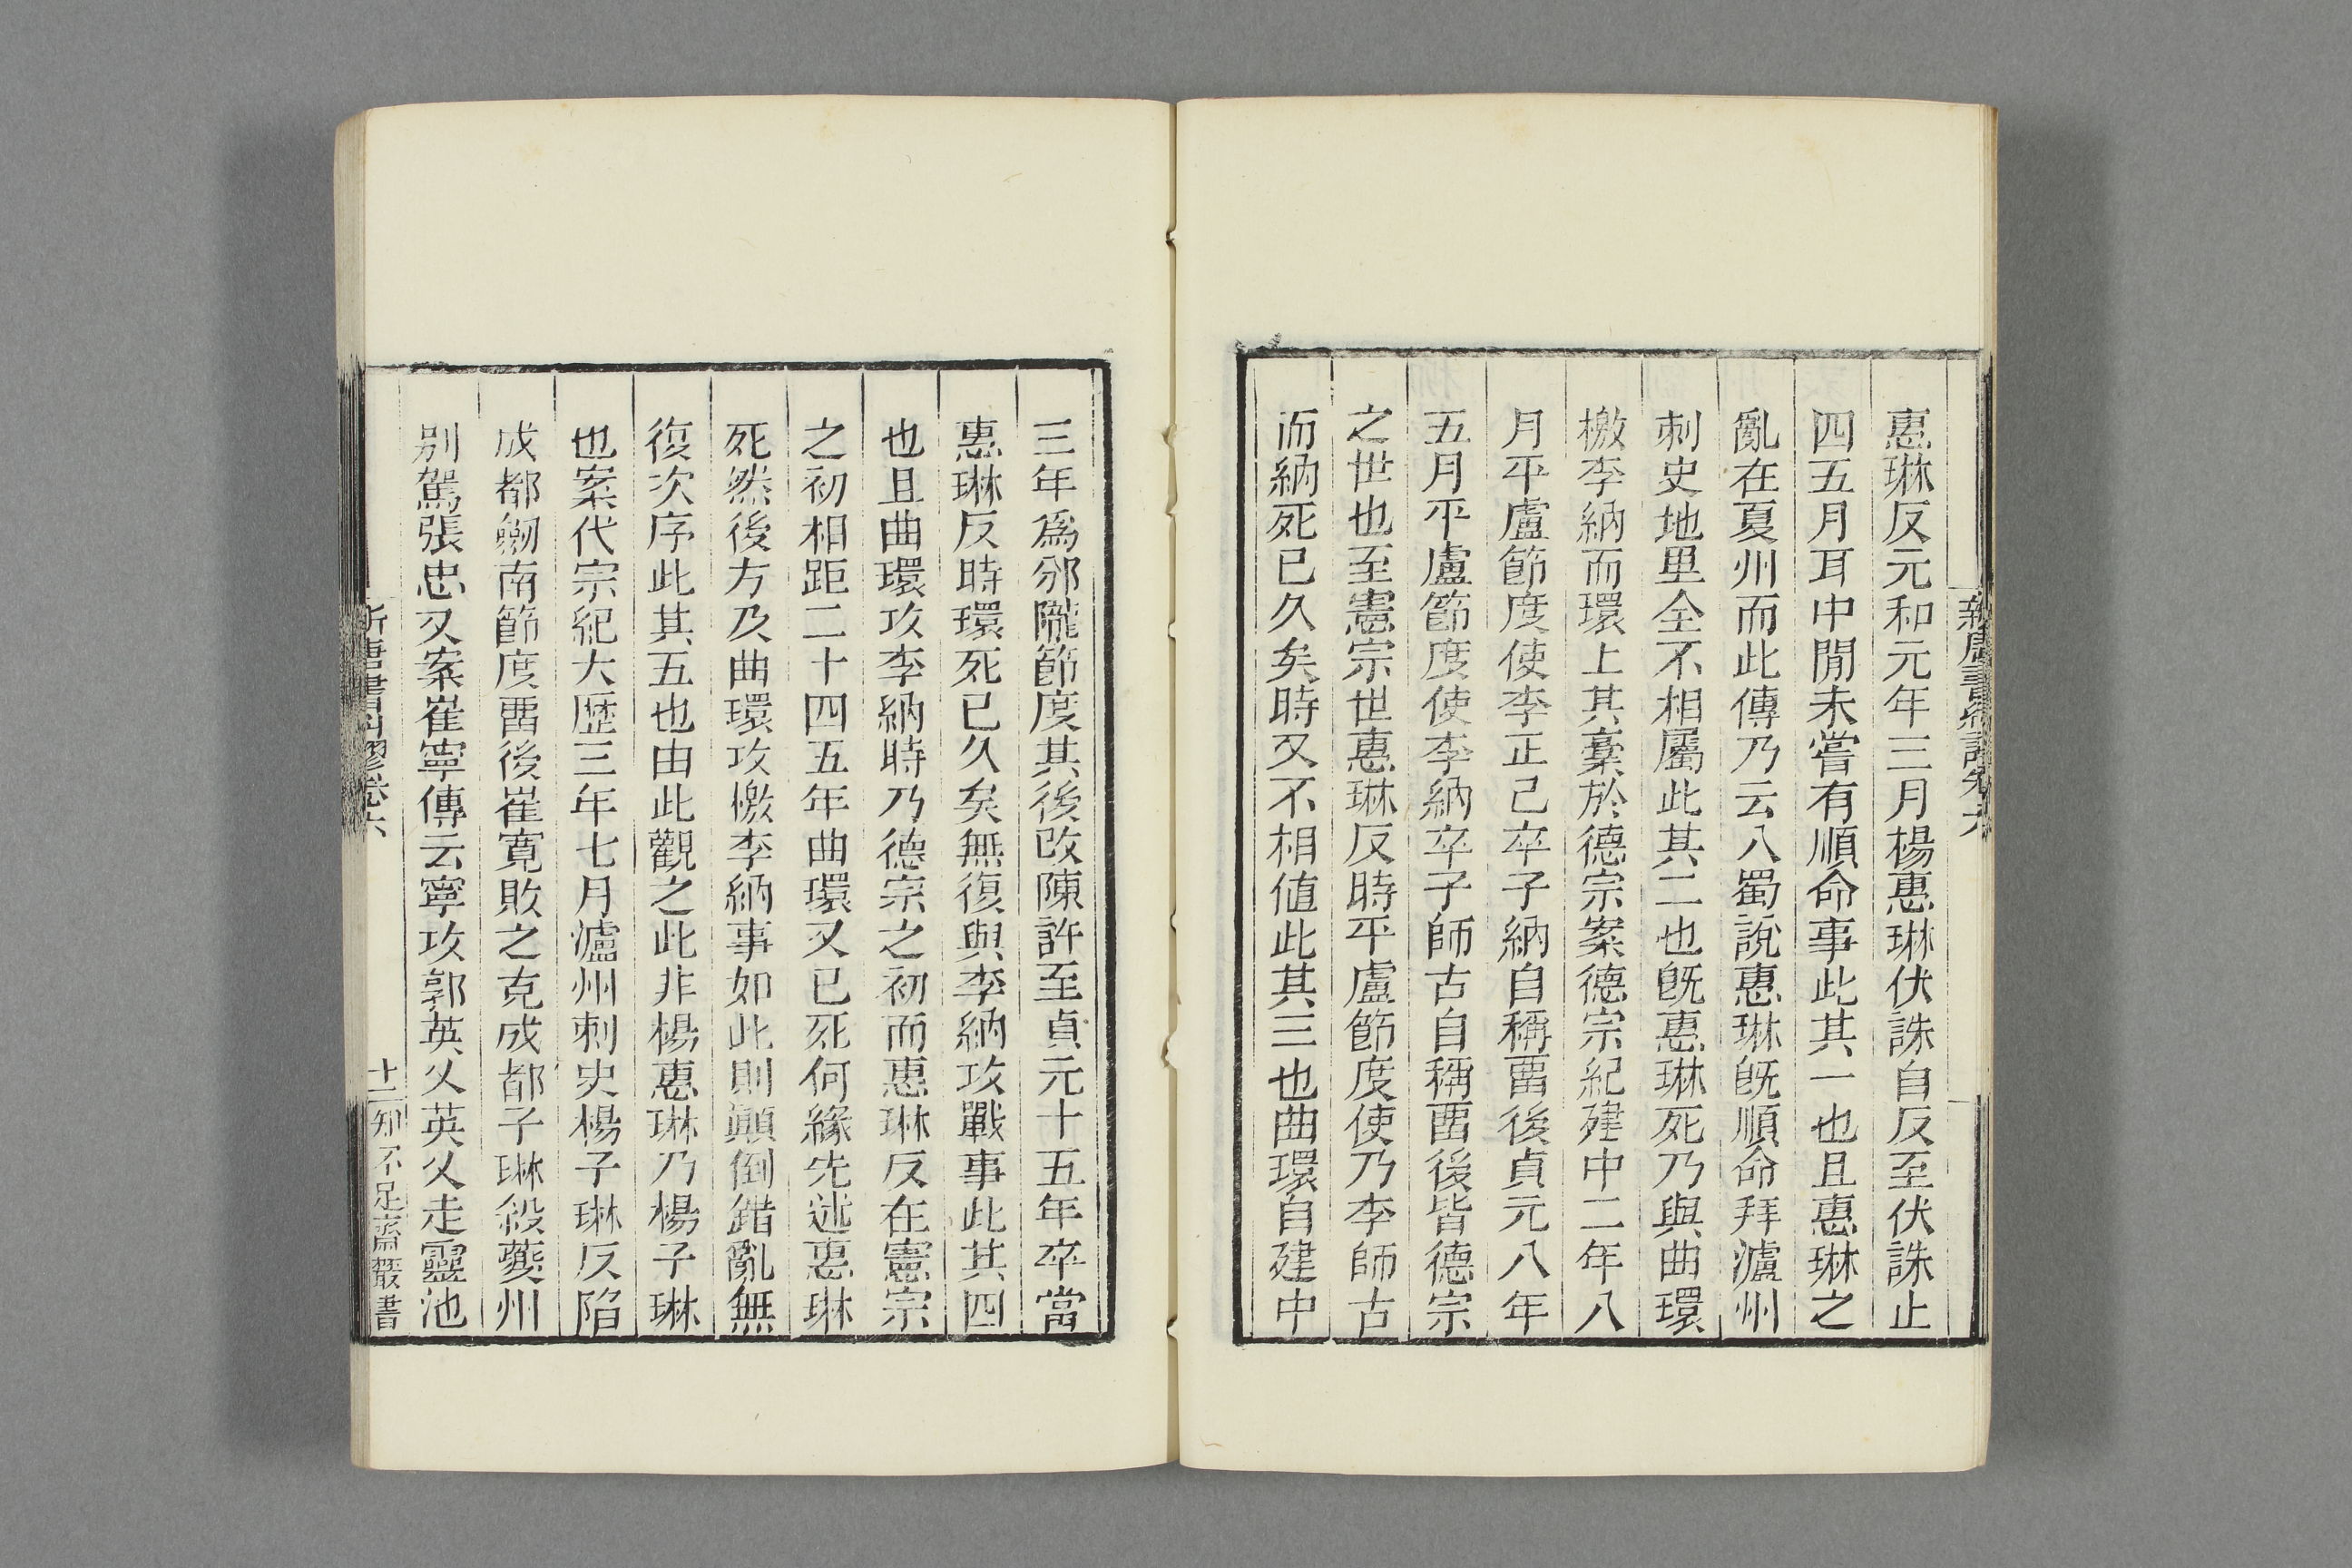 惠琳反元和元年三月楊惠琳伏誅自反至伏誅止
四五月耳中閒未嘗有順命事此其一也且惠琳之
亂在夏州而此傳乃云八蜀說惠琳旣順命拜瀘州
刺史地里全不相屬此其二也旣惠琳死乃與曲環
檄李納而環上其稾於德宗案德宗紀建中二年八
月平盧節度使李正己卒子納自稱畱後貞元八年
五月平盧節度使李納卒子師古自稱畱後皆德宗
之世也至憲宗世惠琳反時平盧節度使乃李師古
而納死已久矣時又不相値此其三也曲環自建中
三年爲邠隴節度其後改陳許至貞元十五年卒當
惠琳反時環死已久矣無復與李納攻戰事此其四
也且曲環攻李納時乃德宗之初而惠琳反在憲宗
之初相距二十四五年曲環又已死何緣先述惠琳
死然後方及曲環攻檄李納事如此則顚倒錯亂無
復次序此其五也由此觀之此非楊惠琳乃楊子琳
也案代宗紀大歴三年七月瀘州刺史楊子琳反陷
成都劒南節度畱後崔寬敗之克成都子琳殺夔州
别駕張忠又案崔寧傳云寧攻郭英乂英乂走靈池
新唐書糾謬卷六
十二
知不足齋叢書